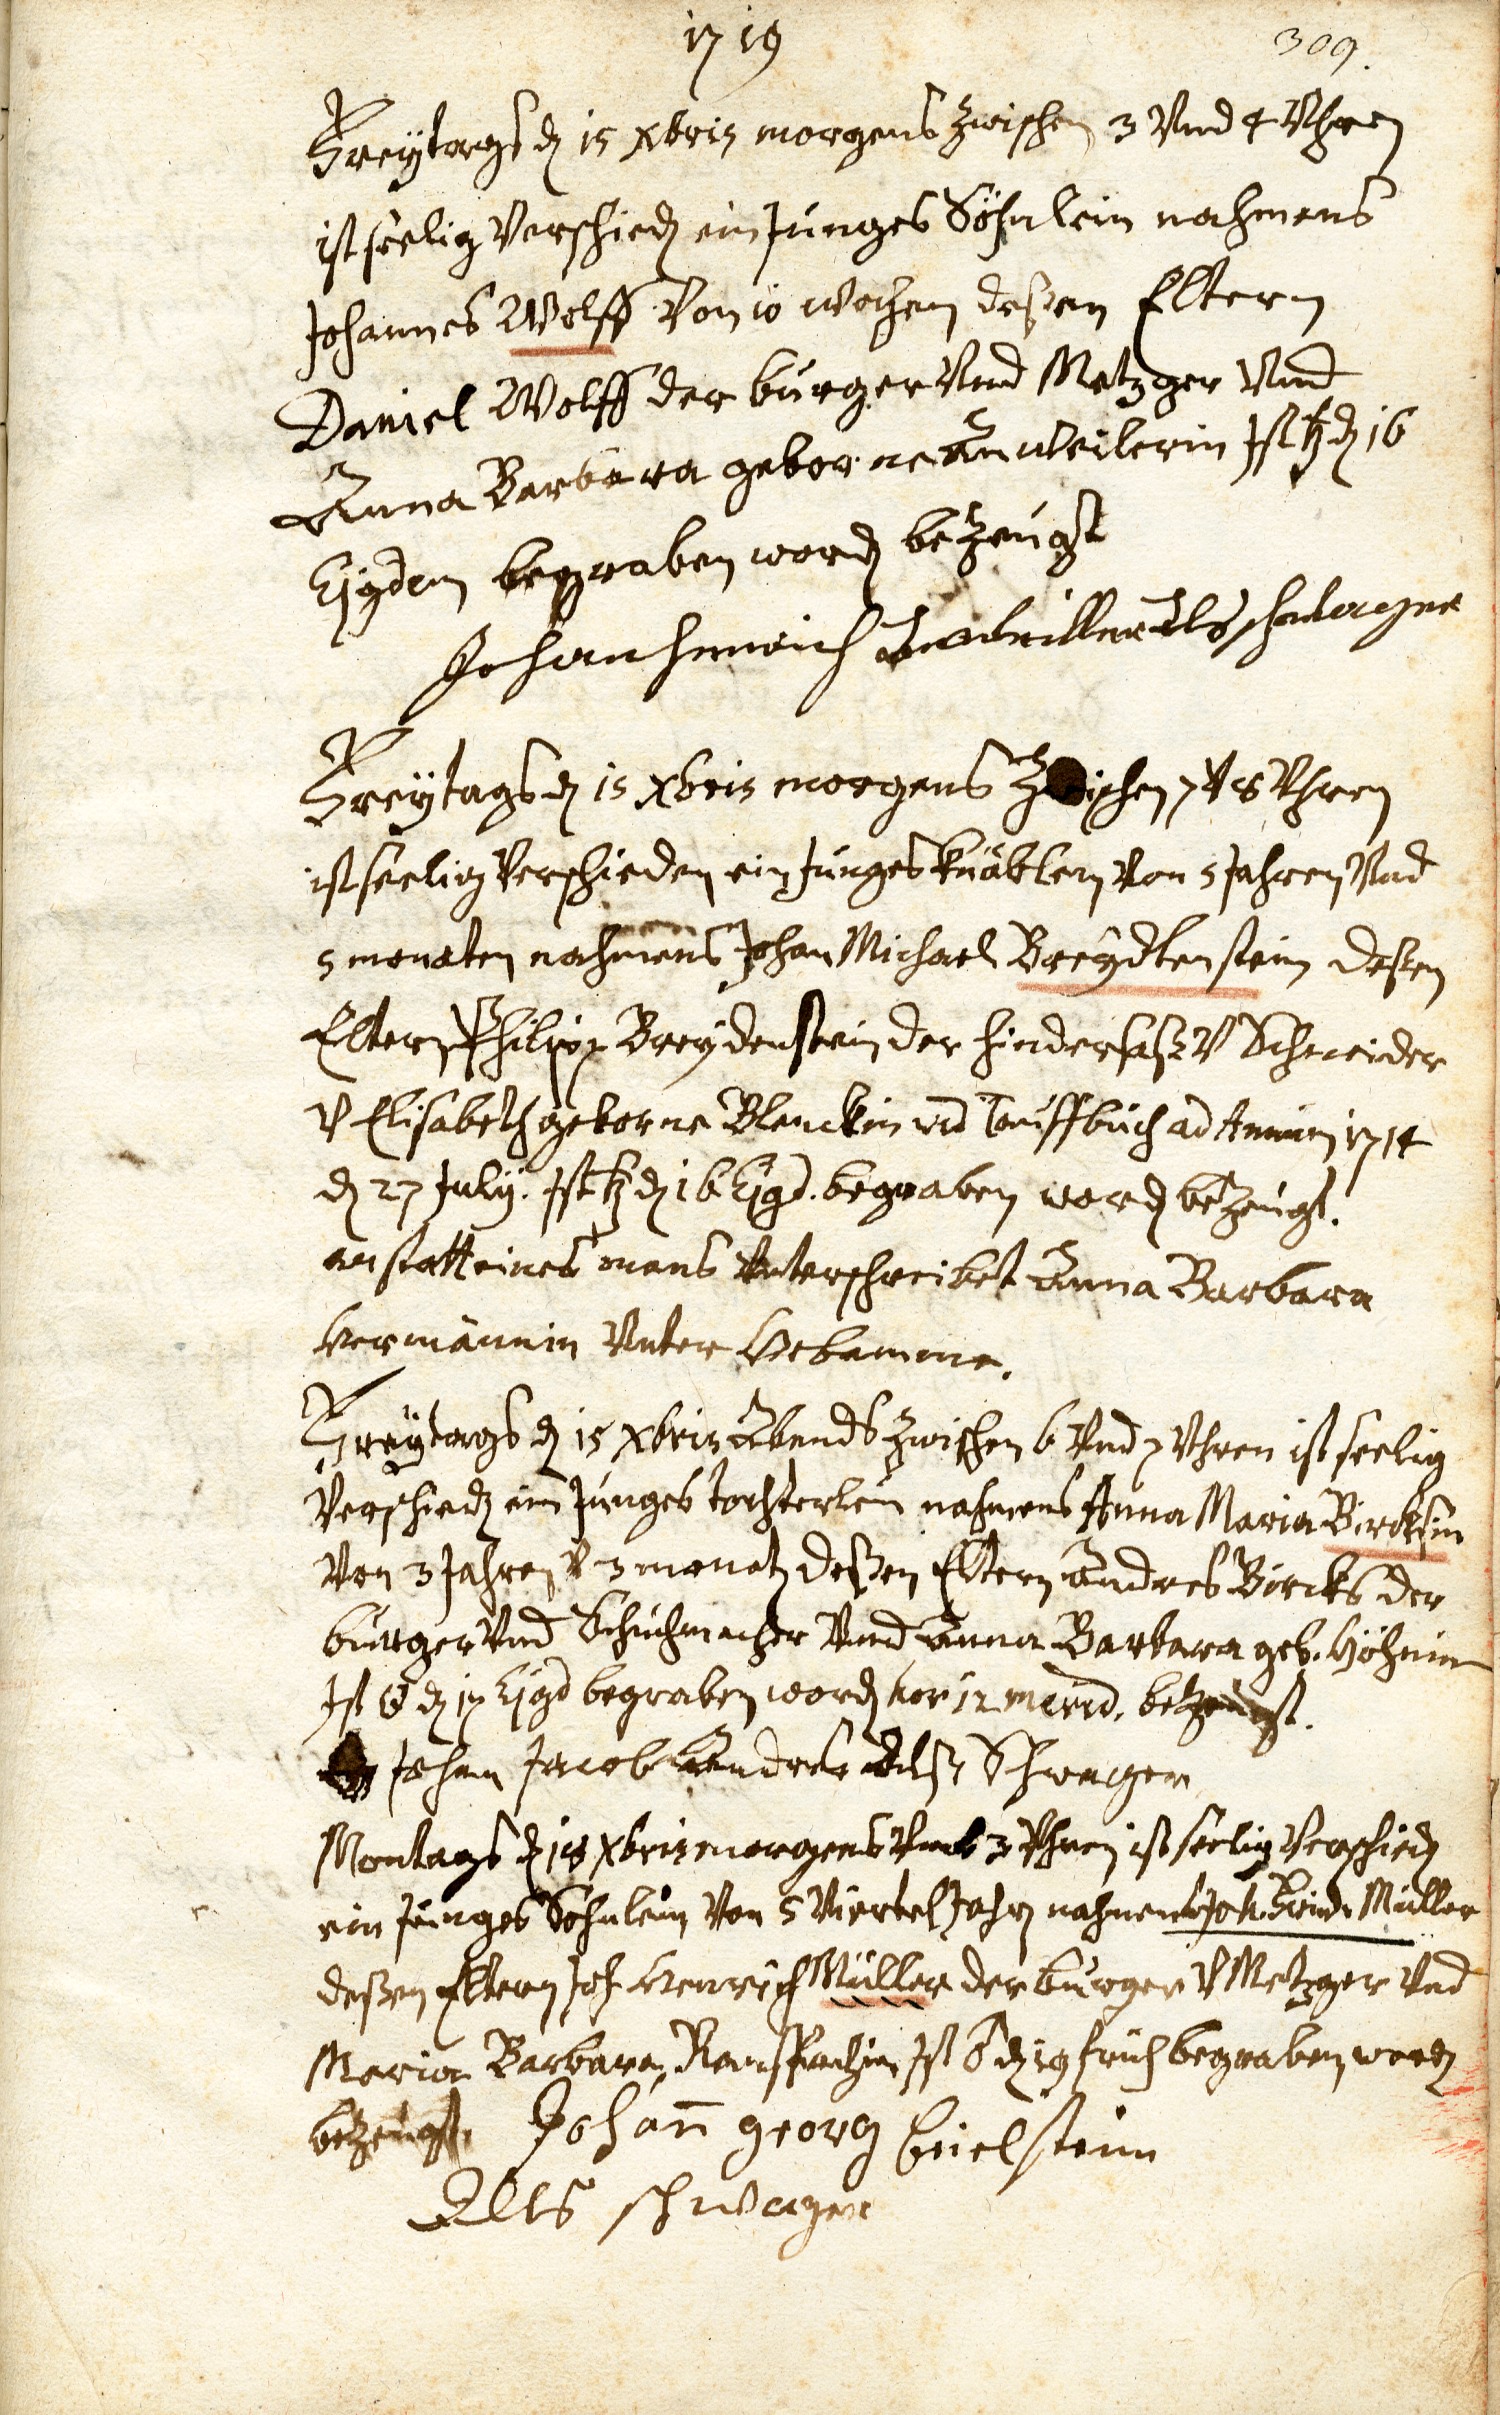 1719
309.
Freÿtags dẽ 15 Xbris morgens zwischen 3 Vnd 4 Vhren
ist seelig Verschiedẽ ein Junges Söhnlein nahmens
Johannes Wolff Von 10 wochen deßen Eltern
Daniel Wolff der burger Vnd Metzger Vnd
Anna Barbara geborne Anweilerin Ist ♄ dẽ 16
Ejgdem begraben wordẽ bezeugt
Johan henrich als schwager
Freÿtags dẽ 15 Xbris morgens Zwischen 7 V 8 Vhren
ist seelig Verschieden ein Junges knäblein Von 5 Jahren Vnd
5 monaten nahmens Johan Michael Breydtenstein deßen
Eltern Philipp Breydenstein der hindersaß V Schneider
V Elisabeth geborne Blenckin vid Tauffbuch ad Annum 1714
dẽ 27 July. Ist ♄ dẽ 16 Ejgd. begraben wordẽ bezeugt.
anstatt eines mans Vnterschreibet Anna Barbara
Hermännin Vnter Hebamme.
Freÿtags dẽ 15 Xbris Abends zwischen 6 Vnd 7 Vhren ist seelig
Verschiedẽ ein Junges tochterlein nahmens Anna Maria Bircksin
Von 3 Jahren V 3 monatẽ deßen Eltern Andres Bircks der
burger Vnd Schuhmacher Vnd Anna Barbara geb. Höhnin
Ist ☉ dẽ 17 Ejgd begraben wordẽ hor 12 merid. bezeugt.
Johan Jacob Andres Alß Schwager
Montags dẽ 18 Xbris morgens Vmb 3 Vhren ist seelig Verschiedẽ
ein Junges Söhnlein Von 5 Viertel Jahr nahmens Joh. Frid. Müller
deßen Eltern Joh Henrich Müller der burger V Metzger Vnd
Maria Barbara Ist ♂ dẽ 19 früh begraben wordẽ
bezeugt. Johañ georg beielstein
Alls schwager